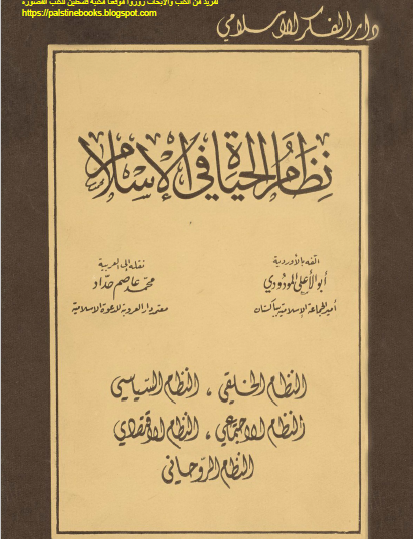 لمزيد من الكتب والأبحاث زوروا موقعنا مكتبة فلسطين للكتب المصورة
https://palstinebooks.blogspot.com
دار الفكر الإسلامي
نظام الحياة في الإسلام
الفه بالأوردية
أبو الأعلى المودودي
أمير الجماعة الإسلامية بباكستان
نقله إلى العربية
محمد عاصم حداد
معتمد دار العروبة للدعوة الإسلامية
النظام الخلقي ، النظام السياسي
النظام الاجتماعي ، النظام الاقتصادي
النظام الروحاني